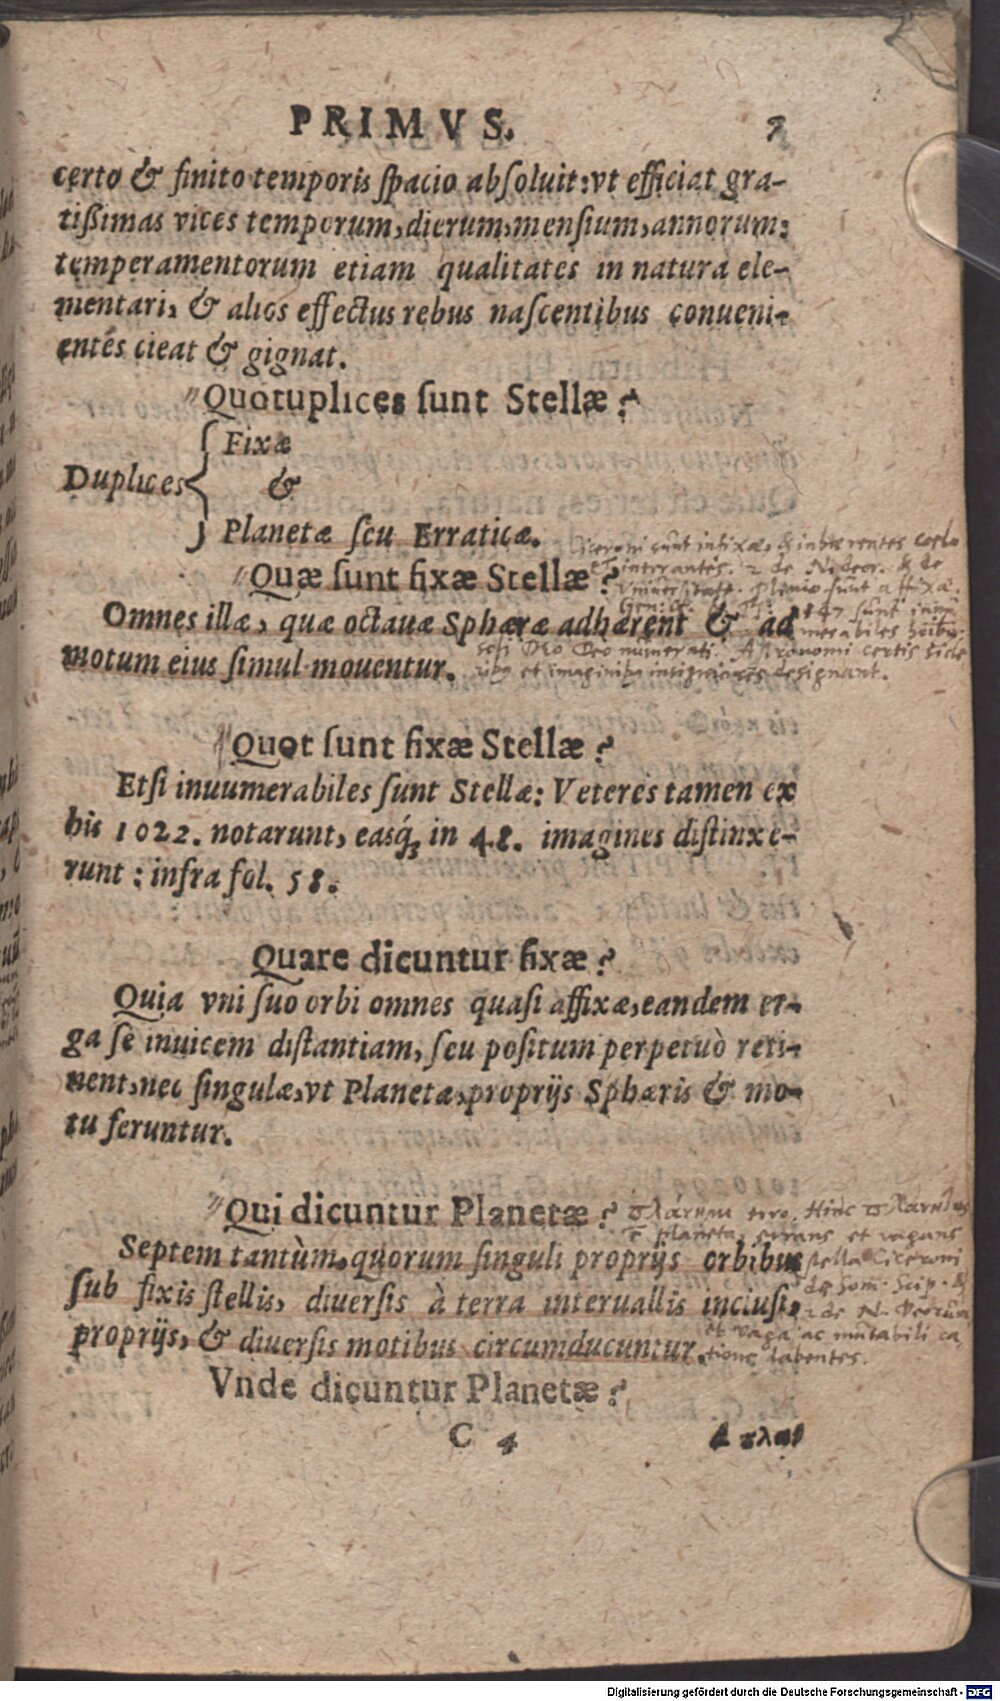 PRIMVS. 7
certo & finito temporis ſpacio abſoluit: vt efficiat gra-
tißimas vices temporum, dierum, menſium, annorum:
temperamentorum etiam qualitates in natura ele-
mentari, & alios effectus rebus naſcentibus conueni-
entes cieat & gignat.
Quotuplices ſunt Stellæ?
Fixæ
Duplices &
Planetæ ſeu Erraticæ.
Ciceroni sunt infixæ, & inhærentes coelo
Quæ ſunt fixæ Stellæ?
Omnes illæ, quæ octauæ Sphæræ adhærent & ad
motum eius ſimul mouentur.
Deo numerati. Astronomi certis side
designant.
Quot ſunt fixæ Stellæ?
Etſi inuumerabiles ſunt Stellæ: Veteres tamen ex
his 1022. notarunt, easq́; in 48. imagines diſtinxe-
runt: infra fol. 58.
Quare dicuntur fixæ?
Quia vni ſuo orbi omnes quaſi affixæ, eandem er-
ga ſe inuicem diſtantiam, ſeu poſitum perpetuò reti-
nent, nec ſingulæ, vt Planetæ, proprijs Sphæris & mo-
tu feruntur.
Qui dicuntur Planetæ? erro. Hinc
planeta, errans et vagans
Septem tantùm, quorum ſinguli proprijs orbibus stella Ciceroni
ſub fixis ſtellis, diuerſis à terra interuallis incluſi, de Som. Scip. &
2 de N. Deorum
proprijs, & diuerſis motibus circumducuntur. et vaga ac mutabili ra
tione labentes.
Vnde dicuntur Planetæ?
C 4 Α πλαν
Digitalisierung gefördert durch die Deutsche Forschungsgemeinschaft - DFG